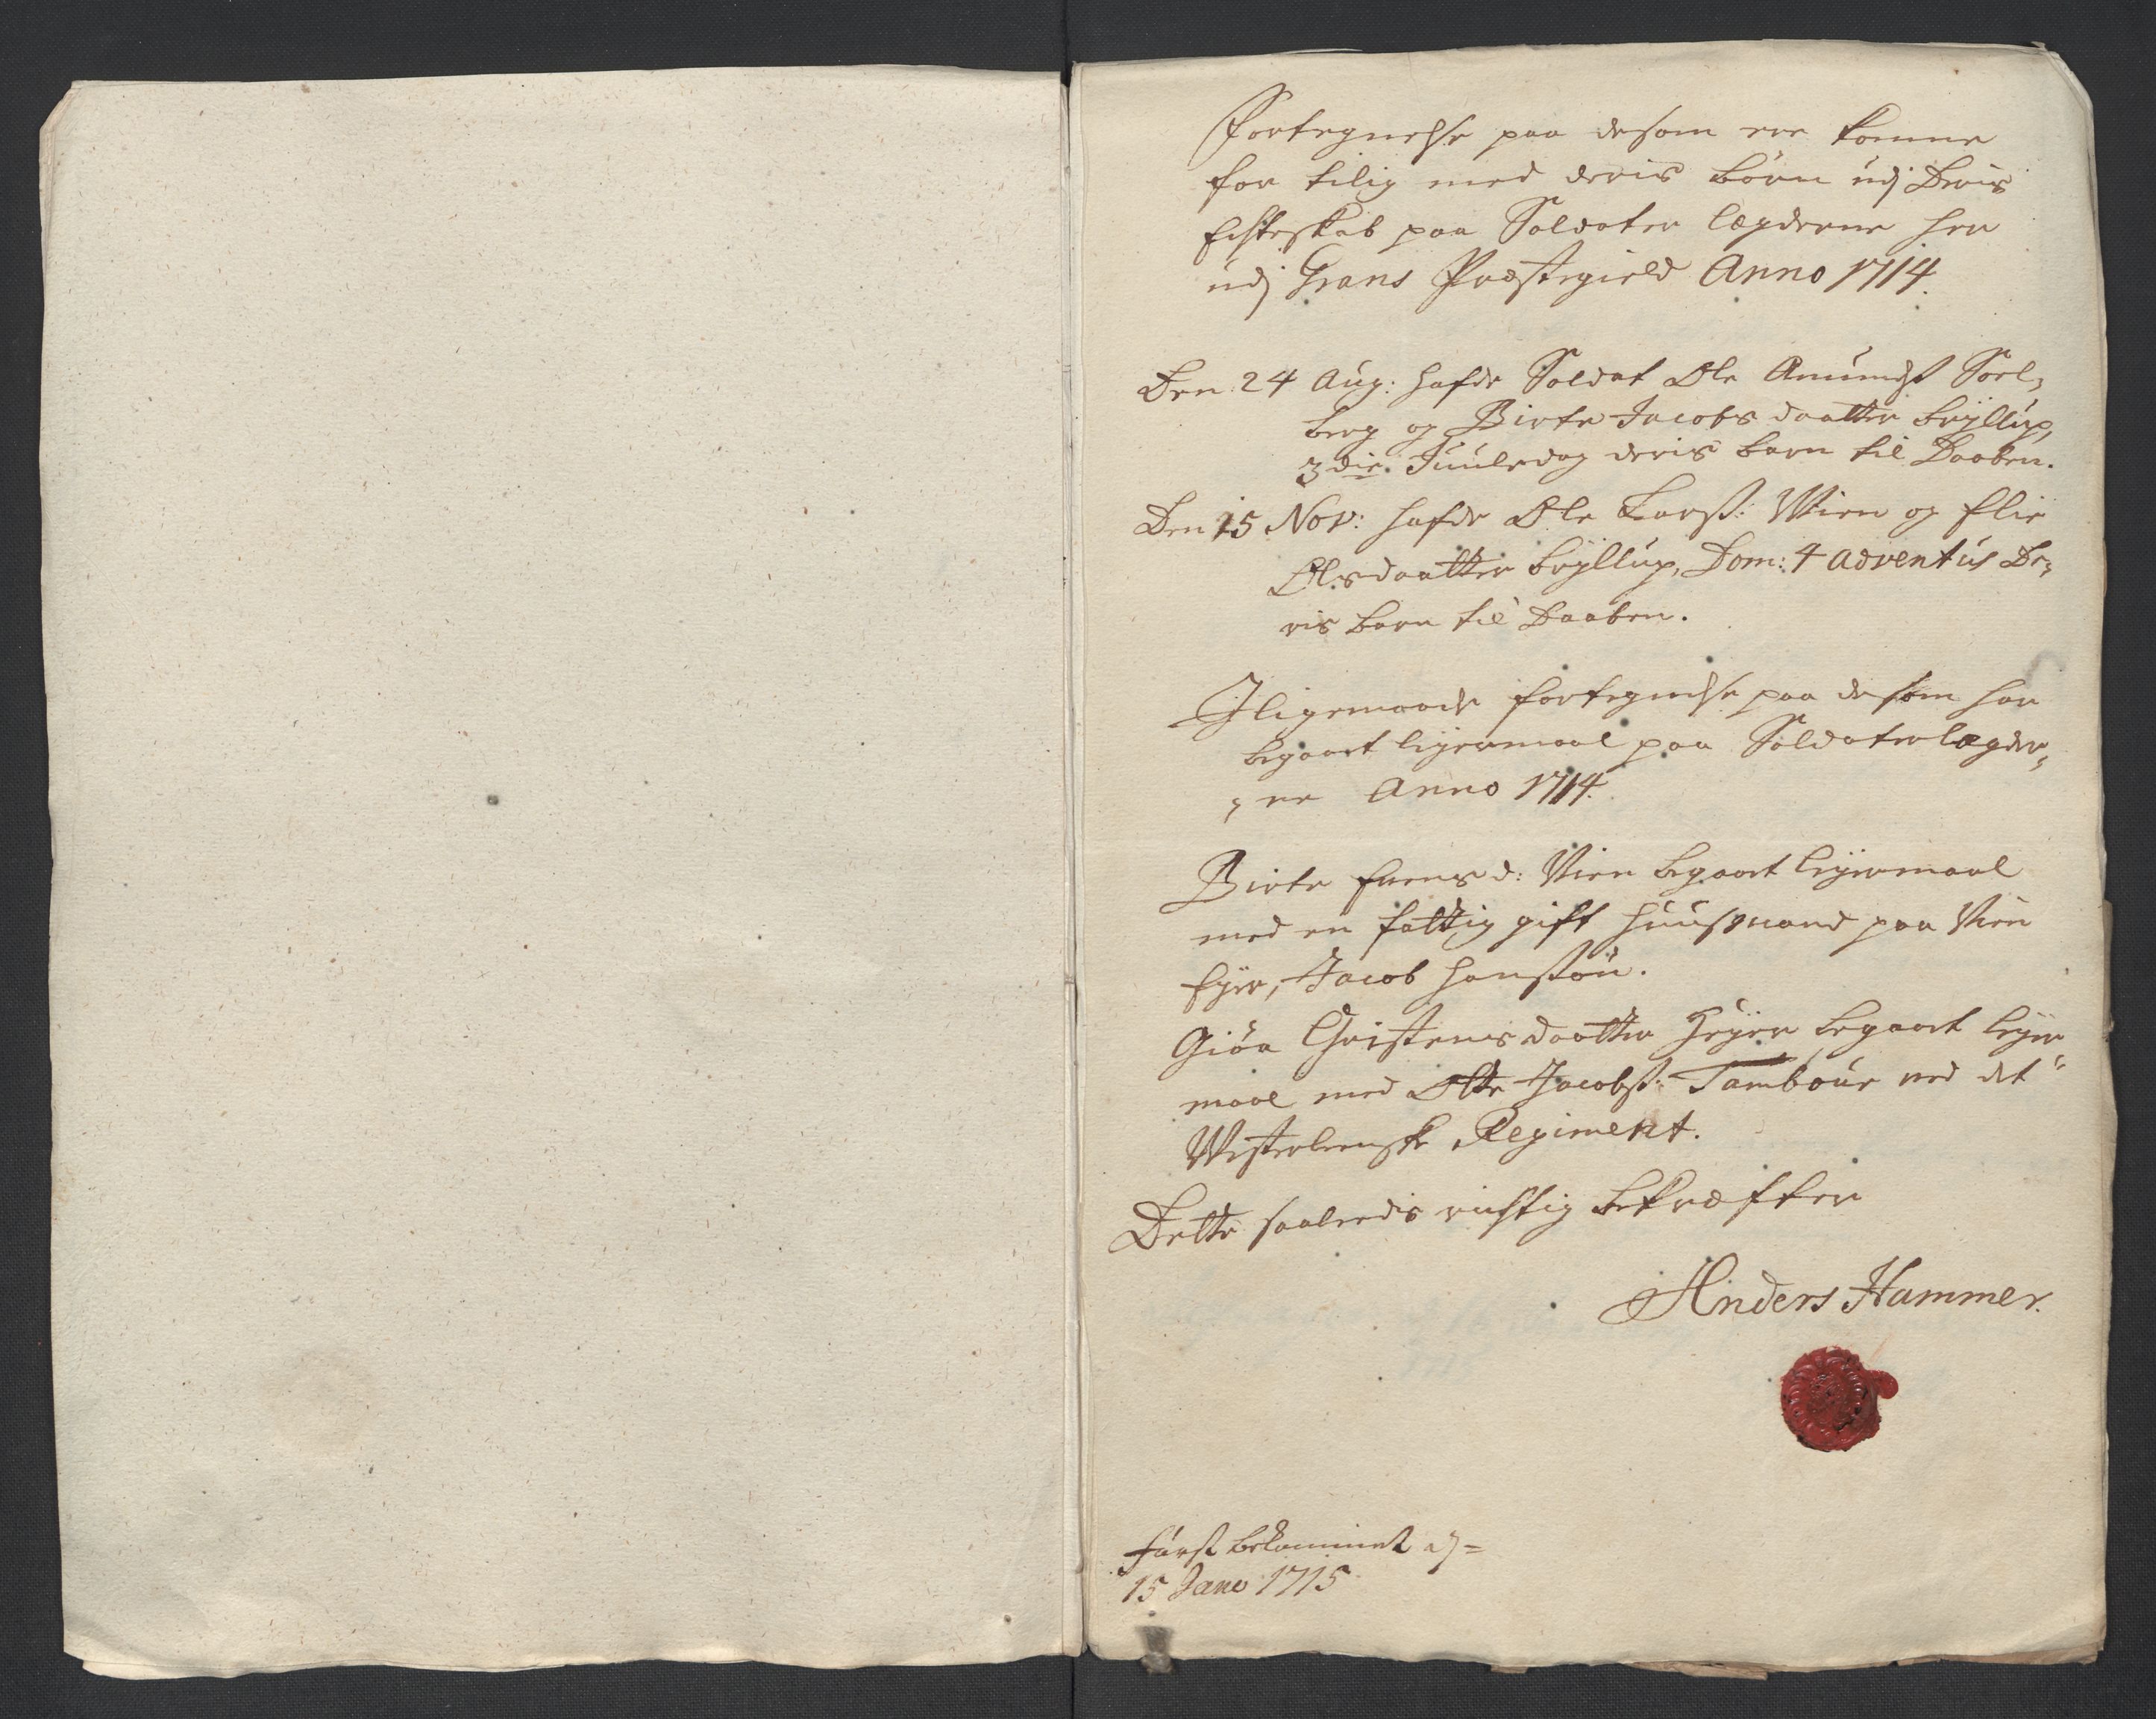 Fortegnelse paa de som ere komne
for tilig med deris børn udj Deris
Echteskab paa Soldater lægderne her
udj Grans Præstegield Anno 1714.
Den 24 Aug: hafde Soldat Ole Amundß Soel,
berg og Birte Jacobs daatter bryllup,
3die Juuledag deris barn til Daaben.
Den 15 Nov: hafde Ole Larß: Wien og Elie
Olsdaatter bryllup, Dom: 4 Adventus De,
ris barn til Daaben.
Jligemaade fortegnelse paa de som har
begaaet leyermaal paa Soldaterlægder,
,ne Anno 1714.
Birte Evens d: Vien begaaet leyermaal
med en fattig gift huusmand paa Vien
Eyer, Jacob Hansøn.
Giøa Christens daatter Heyer begaaet leyer
maal med Otte Jacobß: Tambour ved det
Westerlenske Regiment.
Dette saaledis rigtig bekræfter
Anders Hammer.
først bekommet d
15 Janv 1715